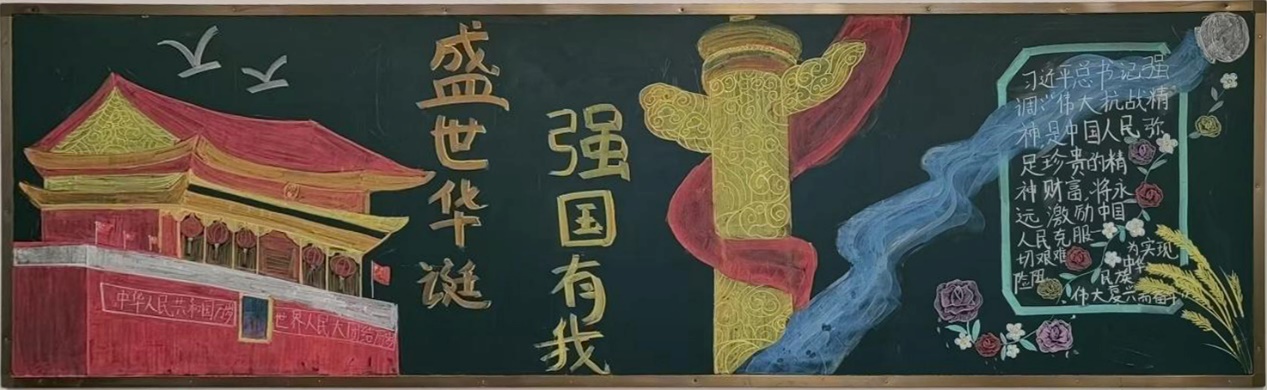 中华人民共和国万岁
世界人民大团结万岁
盛世华诞
强国有我
习近平总书记强
调:“伟大抗战精
神,是中国人民弥
足珍贵的精
神财富,将永
远激励中国
人民克服一
切艰难
险阻
为实现
中华
民族
伟大复兴而奋斗